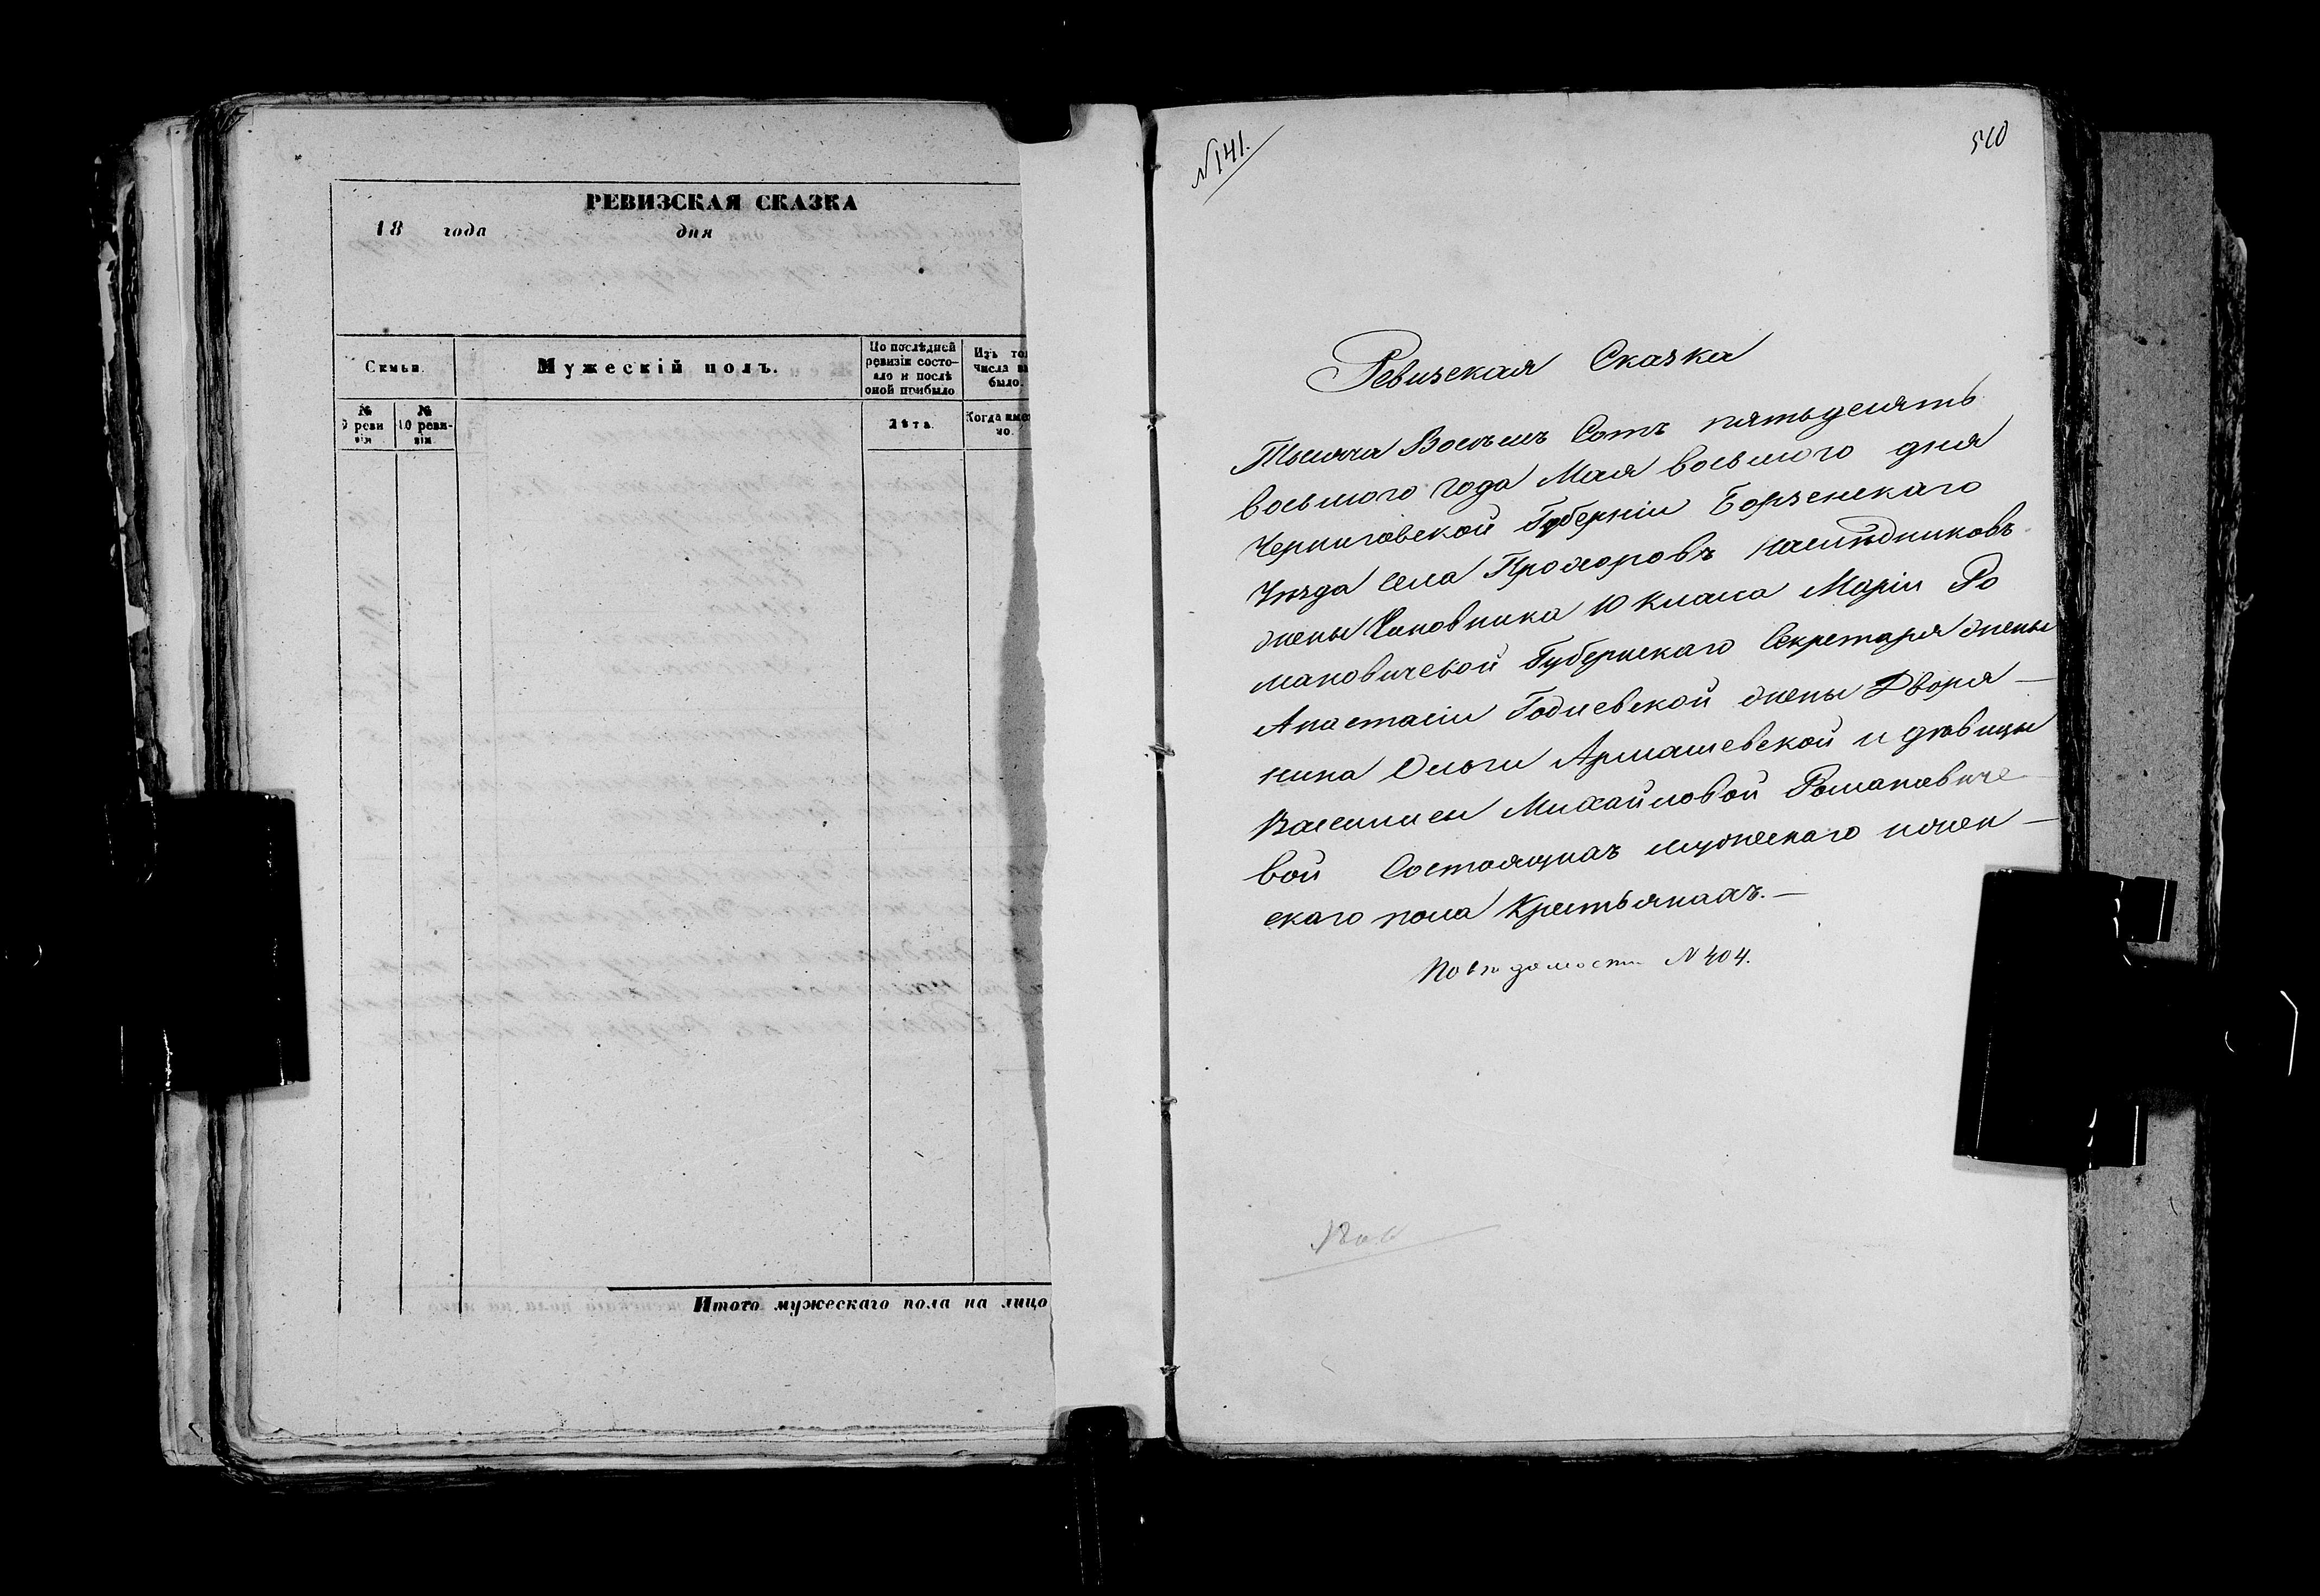 РЕВИЗСКАЯ СКАЗКА
18 года дня
Семьи.
Мужескій полъ.
По послѣдней ревизіи состояло и послѣ оной прибыло
Изъ то числа вы было.
№ 9 реви зіи
№ 10 реви- зіи
Лѣта.
Когда име но.
Итого мужескаго пола на лицо
N 141.
510
Ревизская Сказка
Тысяча Восемъ Сотъ пятьдесятъ
восьмого года Мая восьмого дня
Черниговской Губерніи Борзенскаго
Уѣзда села Прохоровъ наслѣдниковъ
жены Чиновника 10 класса Маріи Ро
мановичевой Губернскаго Секретаря жены
Анастасіи Годиевской жены Дворя—
нина Ольги Армашевской и дѣвицы
Василисы Михайловой Романовиче
вой Состоящихъ мужескаго и жен—
скаго пола Крестьянахъ.—
По вѣдомости N 404.